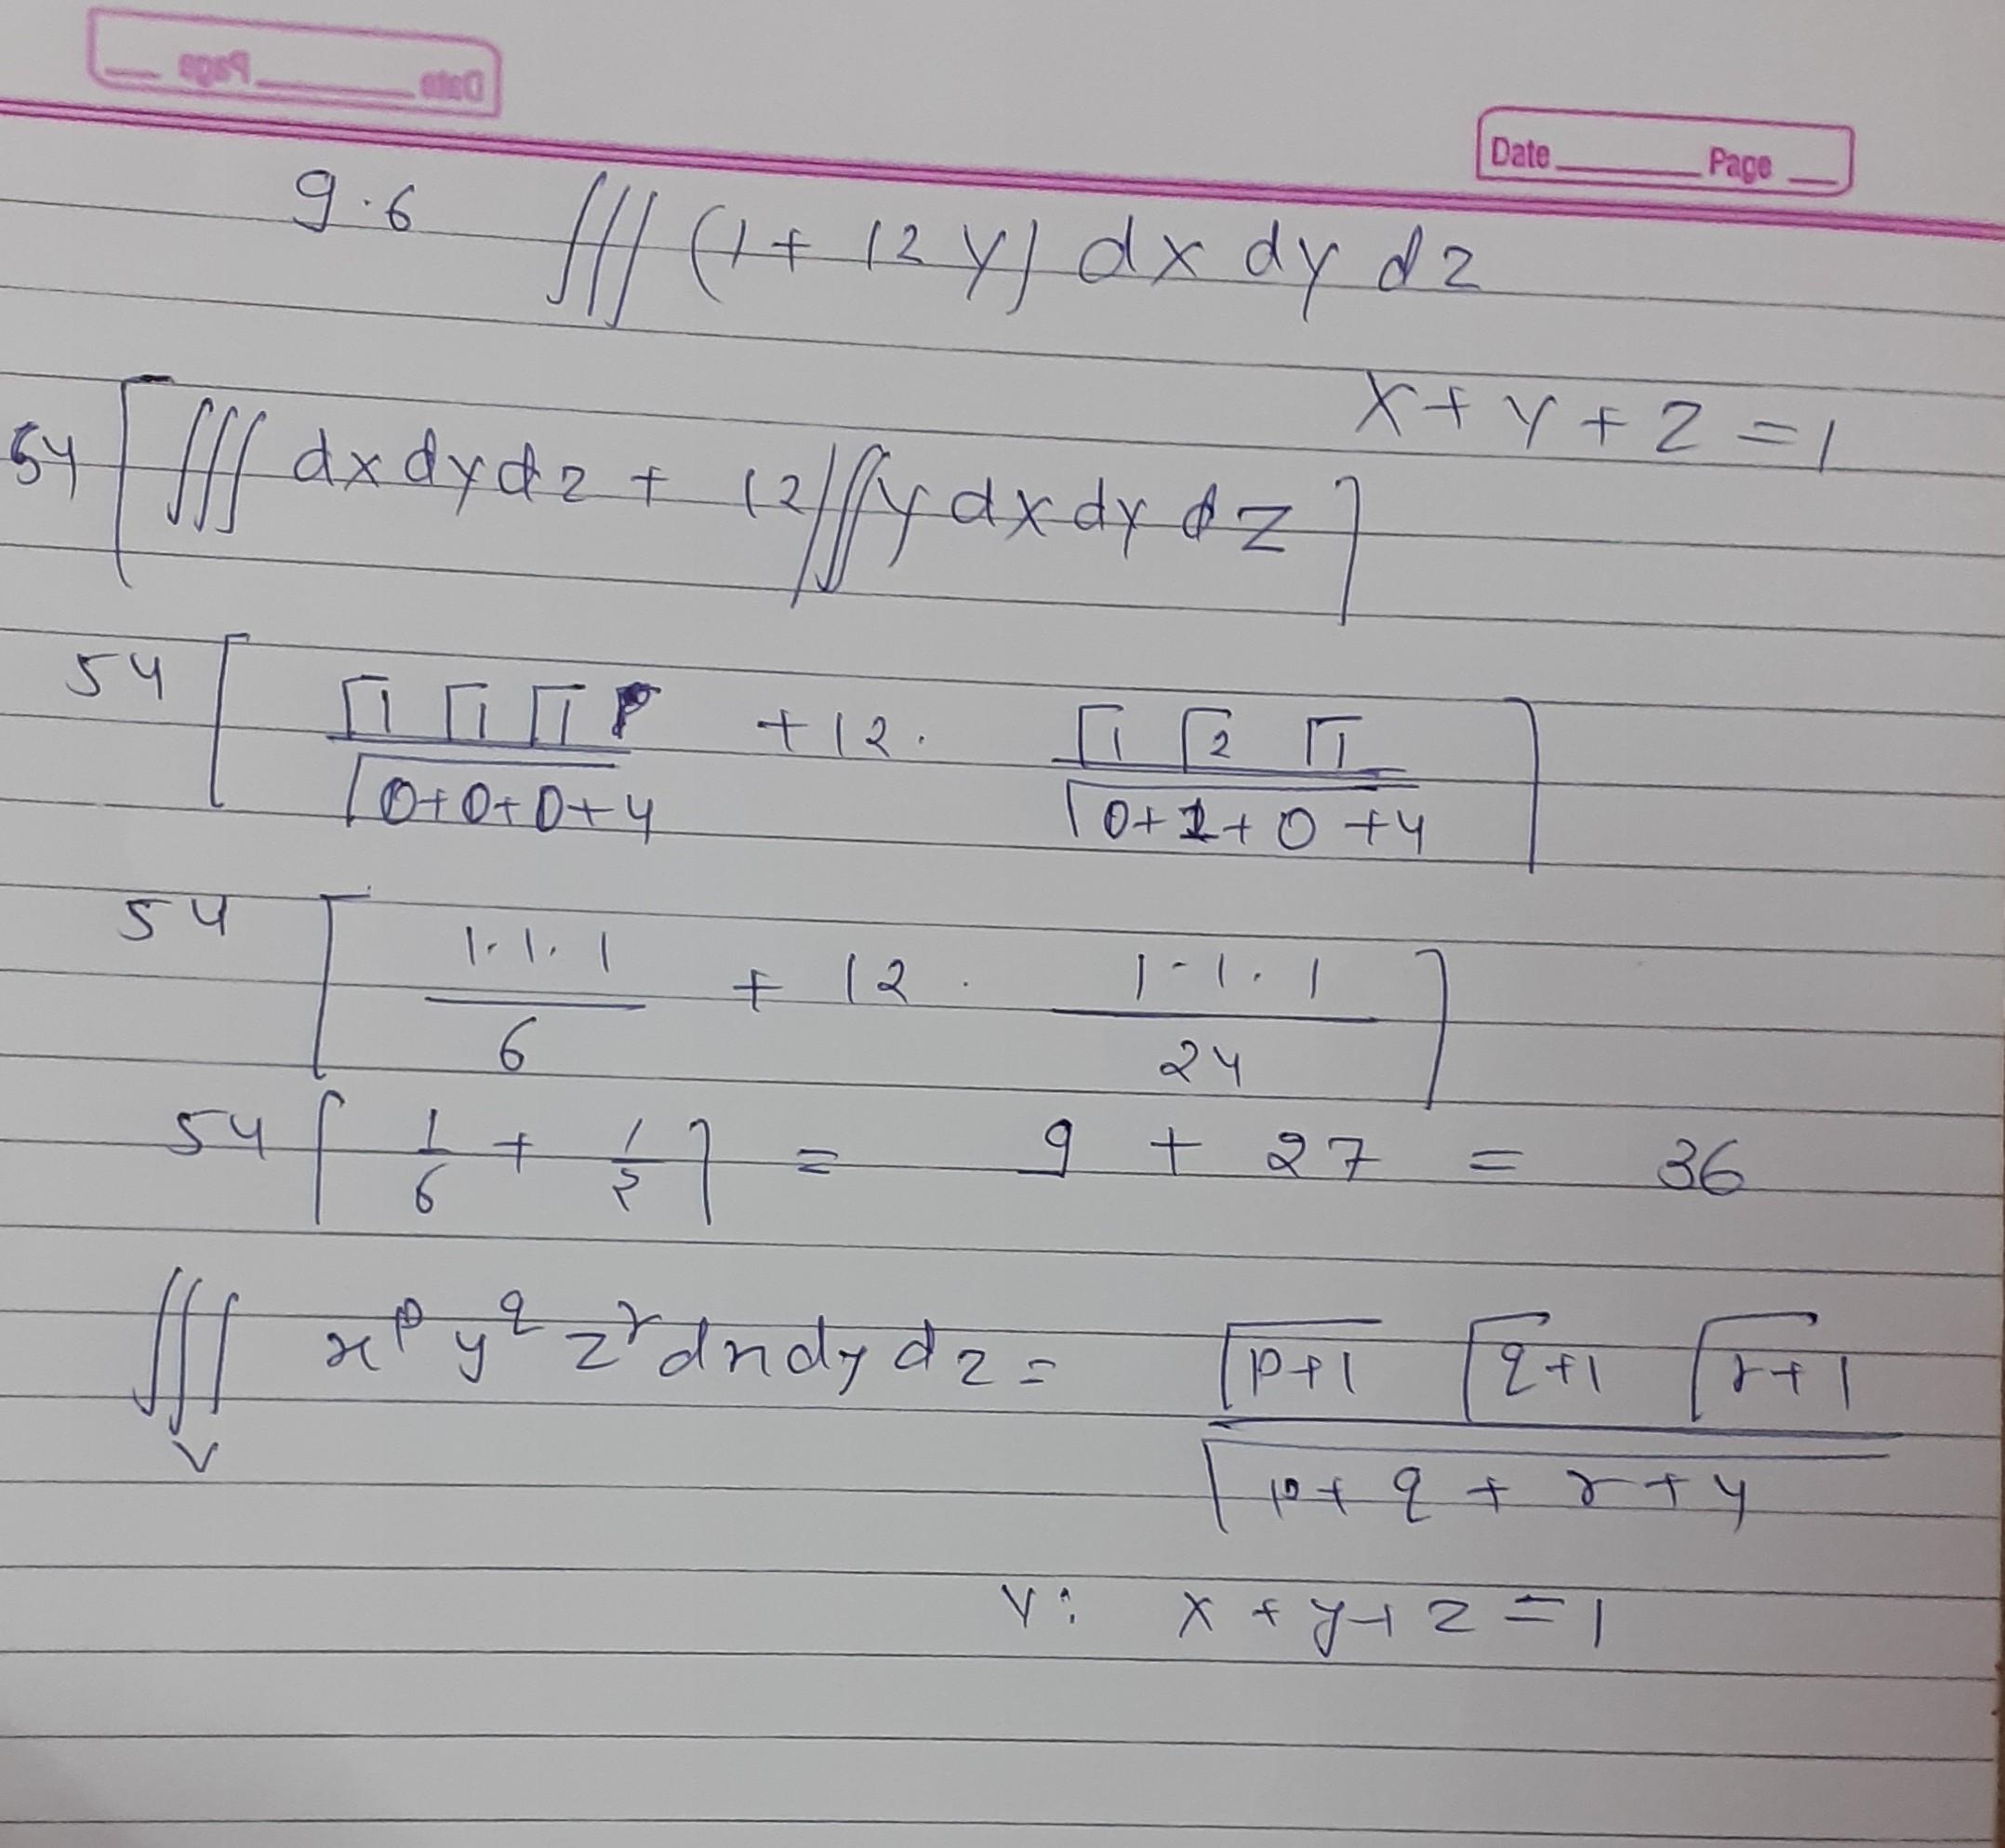 Page Date
Date Page
9.6 ∭ (1 + 12 Y) dx dy dz
x + y + z = 1
54 [ ∭ dx dy dz + 12 ∭ y dx dy dz ]
54 [ (Γ1 Γ1 Γ1) / Γ(0+0+0+4) + 12 . (Γ1 Γ2 Γ1) / Γ(0+1+0+4) ]
54 [ (1.1.1) / 6 + 12 . (1.1.1) / 24 ]
54 [ 1/6 + 1/2 ] = 9 + 27 = 36
∭_V x^p y^q z^r dx dy dz = (Γ(p+1) Γ(q+1) Γ(r+1)) / Γ(p+q+r+4)
V: x + y + z = 1